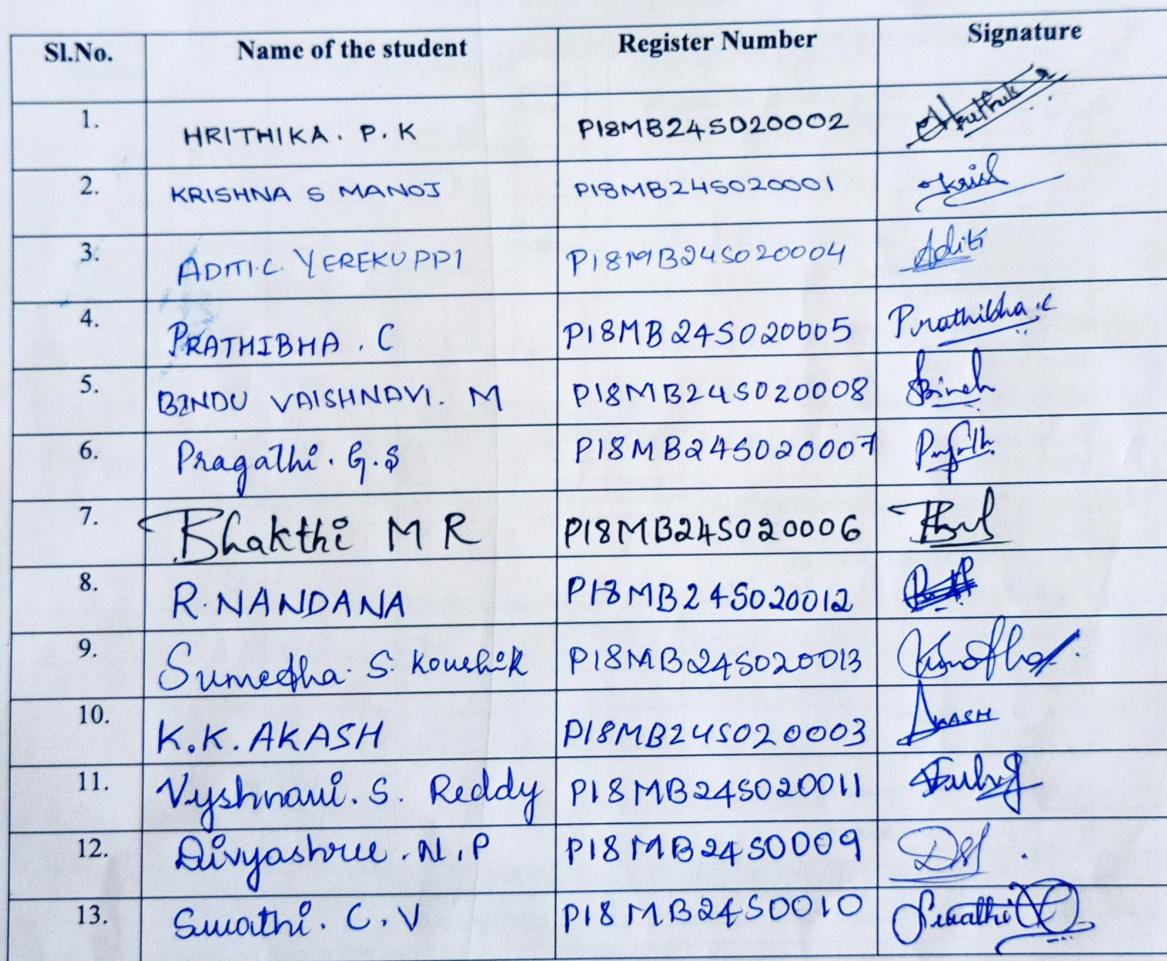 Sl.No. Name of the student Register Number Signature
1. HRITHIKA. P. K P18MB24S020002
2. KRISHNA S MANOJ P18MB24S020001 Krish
3. ADITI.C. YEREKUPPI P18MB24S020004 Aditi
4. PRATHIBHA . C P18MB24S020005 Prathibha.c
5. BINDU VAISHNAVI. M P18MB24S020008
6. Pragathi. G.S P18MB24S020007
7. Bhakthi M R P18MB24S020006
8. R.NANDANA P18MB24S020012
9. Sumedha. S. Koushik P18MB24S020013
10. K.K. AKASH P18MB24S020003 AKASH
11. Vyshnavi. S. Reddy P18MB24S020011
12. Divyashree .N.P P18MB24S0009
13. Swathi. C.V P18MB24S0010 Swathi